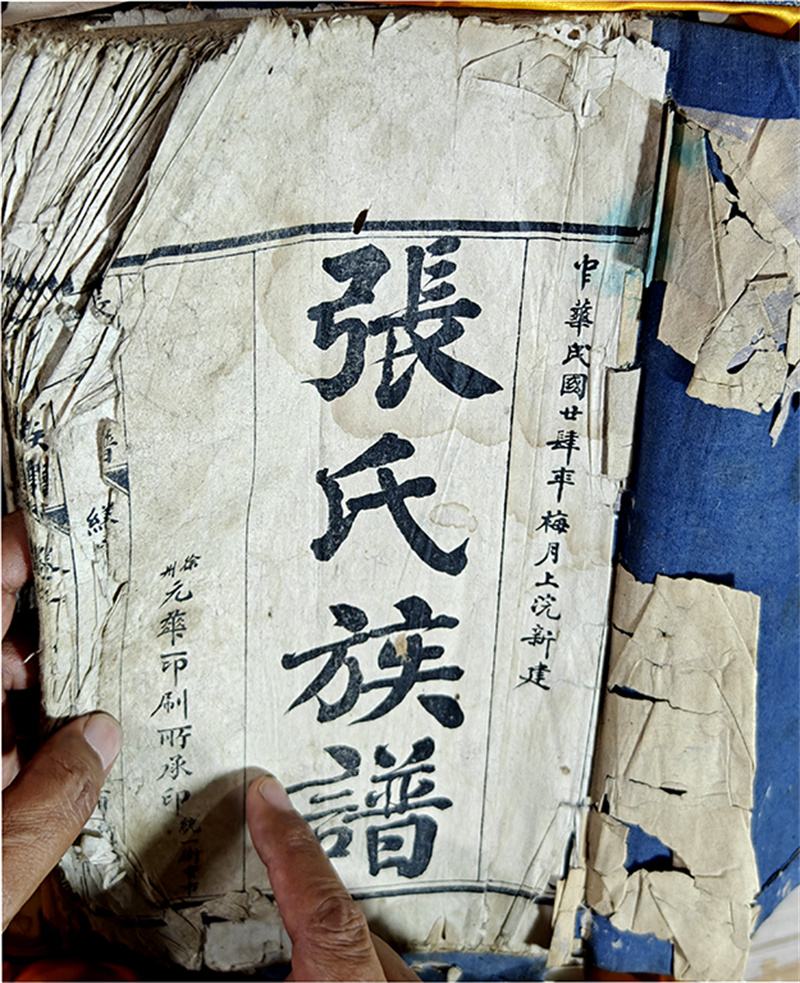 中華民國廿肆年梅月上浣新建
張氏族譜
徐州元華印刷所承印